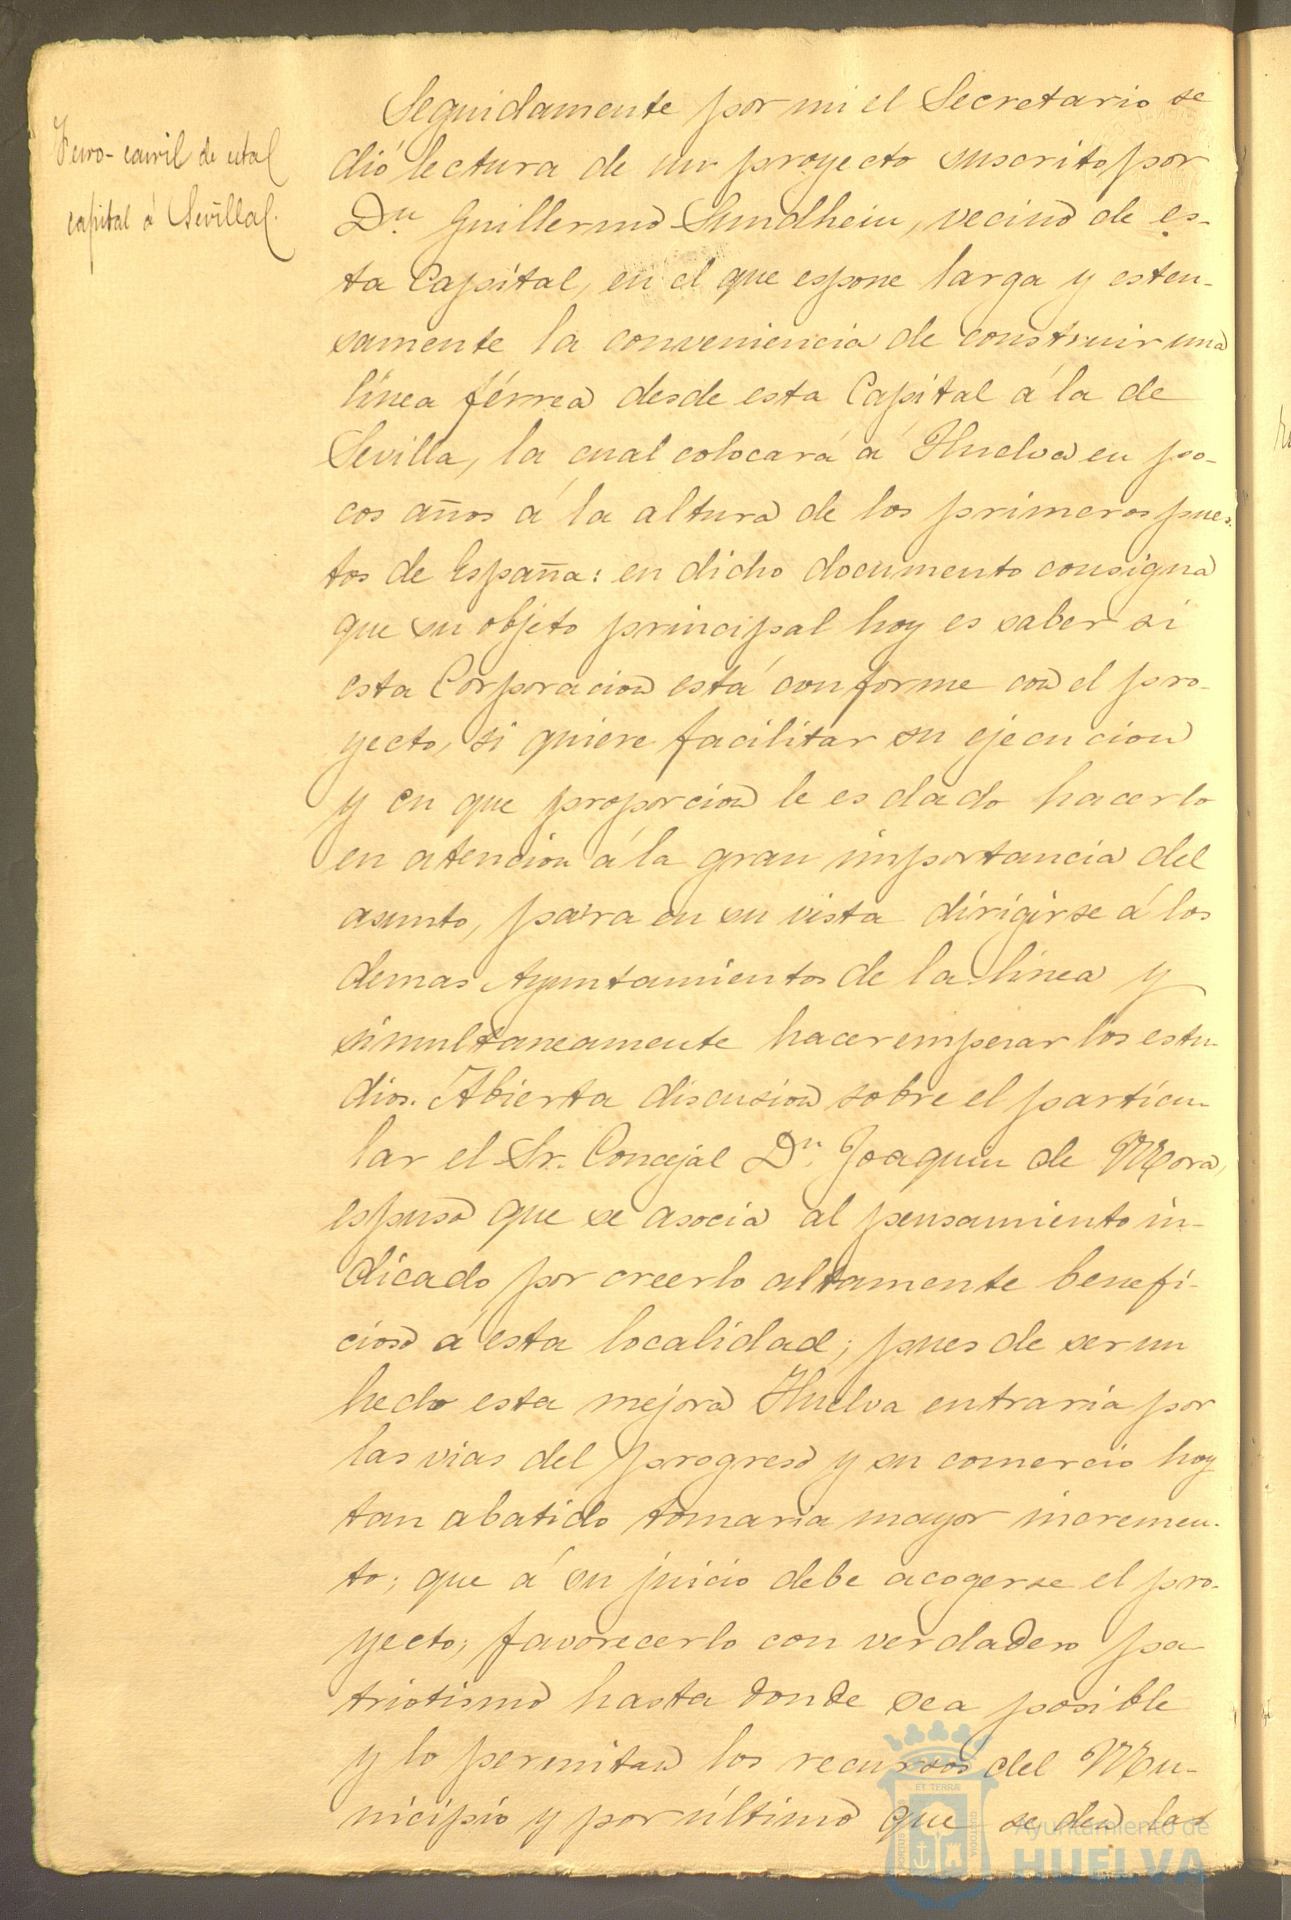 Ferro-carril de esta
capital á Sevilla.
Seguidamente por mi el Secretario se
dió lectura de un proyecto suscrito por
Dn. Guillermo Sundhein, vecino de es-
ta Capital, en el que espone larga y esten-
samente la conveniencia de construir una
línea férrea desde esta Capital á la de
Sevilla, la cual colocará á Huelva en po-
cos años á la altura de los primeros puer-
tos de España: en dicho documento consigna
que su objeto principal hoy es saber si
esta Corporacion está conforme con el pro-
yecto, si quiere facilitar su ejecucion
y en que proporcion le es dado hacerlo
en atencion á la gran importancia del
asunto, para en su vista dirigirse á los
demas Ayuntamientos de la línea y
simultaneamente hacer empezar los estu-
dios. Abierta discusion sobre el particu-
lar el Sr. Concejal Dn. Joaquin de Mora,
espuso que se asocia al pensamiento in-
dicado por creerlo altamente benefi-
cioso á esta localidad; pues de ser un
hecho esta mejora Huelva entraria por
las vias del progreso y su comercio hoy
tan abatido tomaria mayor incremen-
to; que á su juicio debe acogerse el pro-
yecto; favorecerlo con verdadero pa-
triotismo hasta donde sea posible
y lo permitan los recursos del Mu-
nicipio y por último que se den las
Ayuntamiento de
HUELVA